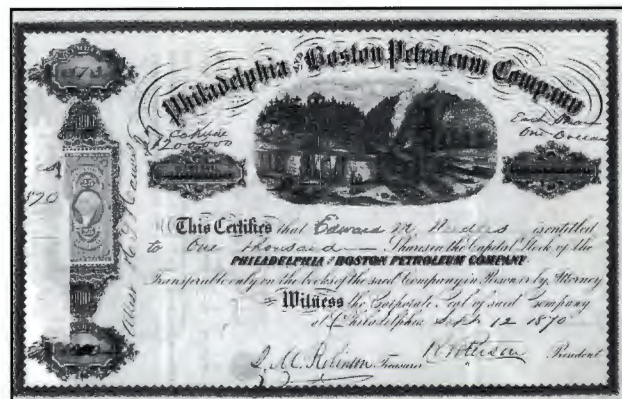 Philadelphia and Boston Petroleum Company
Capital
$200.000
Each Share
One Dollar
This Certifies that Edward M. Needles is entitled
to One thousand Shares in the Capital Stock of the
PHILADELPHIA AND BOSTON PETROLEUM COMPANY.
Transferable only on the books of the said Company in Person or by Attorney
Witness the Corporate Seal of said Company
at Philadelphia Sept 12 1870
Treasurer
President